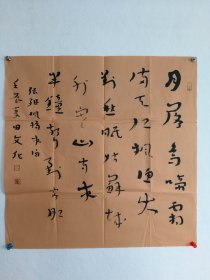 月落烏啼霜
滿天江楓漁火
對愁眠姑蘇城
外寒山寺夜
半鐘聲到客船
張繼楓橋夜泊
壬辰夏田文